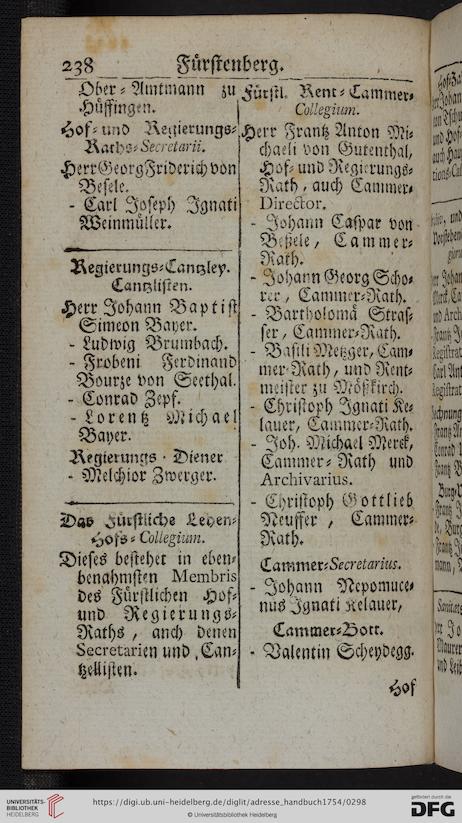 238 Fürstenberg.
Ober-Amtmann zu
Hüffingen.
Hof- und Regierungs-
Raths-Secretarii.
Herr Georg Friderich von
Besele.
- Carl Joseph Ignati
Weinmüller.
Regierungs-Cantzley.
Cantzlisten.
Herr Johann Baptist
Simeon Bayer.
- Ludwig Brumbach.
- Frobeni Ferdinand
Bourze von Seethal.
- Conrad Zepf.
- Lorentz Michael
Bayer.
Regierungs-Diener
- Melchior Zwerger.
Das Fürstliche Lehen-
Hofs-Collegium.
Dieses bestehet in eben-
benahmsten Membris
des Fürstlichen Hof-
und Regierungs-
Raths, auch denen
Secretarien und Can-
tzellisten.
Fürstl. Rent-Cammer-
Collegium.
Herr Frantz Anton Mi-
chaeli von Gutenthal,
Hof- und Regierungs-
Rath, auch Cammer-
Director.
- Johann Caspar von
Beßele, Cammer-
Rath.
- Johann Georg Scho-
rer, Cammer-Rath.
- Bartholomä Stras-
ser, Cammer-Rath.
- Basili Metzger, Cam-
mer-Rath, und Rent-
meister zu Mößkirch.
- Christoph Ignati Ke-
lauer, Cammer-Rath.
- Joh. Michael Merck,
Cammer-Rath und
Archivarius.
- Christoph Gottlieb
Neuffer, Cammer-
Rath.
Cammer-Secretarius.
- Johann Nepomuce-
nus Ignati Kelauer,
Cammer-Bott.
- Valentin Scheydegg.
Hof
UNIVERSITÄTS-
BIBLIOTHEK
HEIDELBERG
https://digi.ub.uni-heidelberg.de/diglit/adresse_handbuch1754/0298
© Universitätsbibliothek Heidelberg
gefördert durch die
DFG